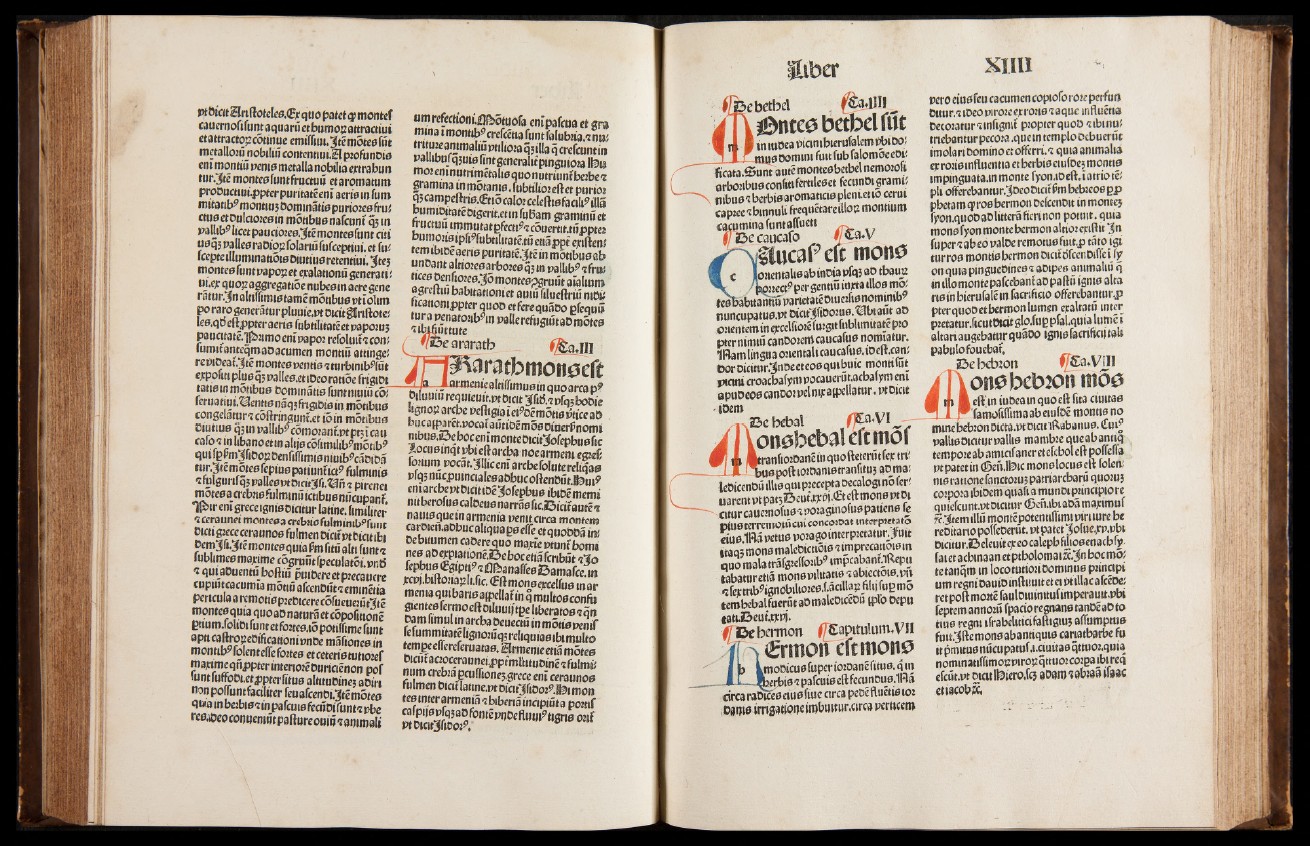 vt dicit Aristoteles. Ex quo patet ꝙ montes
cauernosi sunt aquarū et humoꝝ attractiui
et attractoꝝ cōtinue emissiui. Itē mōtes sūt
metallorū nobiliū contentiui. A profundis
eni montiū venis metalla nobilia extrahun
tur. Itē montes sunt fructuū et aromatum
productiui. ꝓpter puritatē eni aeris in sum
mitatibꝰ montiuꝫ dominātis puriores fru
ctus et dulciores in mōtibus nascunt̄ ꝙ̄ in
vallibꝰ licet pauciores. Itē montes sunt
usꝙ valles radioꝝ solariū susceptiui. et su
scepte illuminatiōis diutius retentiui. Itē
montes sunt vapoꝝ et exalationū generati
ui. ex quoꝝ aggregatiōe nubes in aere gene
rātur. In altissimis tamē mōtibus vt
po raro generātur pluuie. vt dicit Aristote
les. qd est ꝓpter aeris subtilitatē et vaporuꝫ
paucitatē. Primo eni vapor resoluit̄ ⁊ con
sumit̄ anteꝙ̄ ad acumen montiū attinge
re videat̄. Itē montes ventis ⁊ turbinibꝰ sūt
expositi plus ꝙ̄ valles. et ideo ratiōe frigidi
tatis in mōtibus dominātis sunt niuiū cō
seruatiui. Uentis nāꝙ frigidis in mōtibus
congelātur ⁊ cōstringunt̄. et iō in mōtibus
diutius ꝙ̄ in vallibꝰ cōmorant̄. vt ptꝫ i cau
caso ⁊ in libano et in alijs cōsimilibꝰ mōtibꝰ
qui densissimis niuibꝰ cādidā
tur. Itē mōtes sepius patiunt̄ icꝰ fulminis
⁊ fulguris ꝙ̄ valles vt dicit Isi. Un̄ ⁊ pirenei
mōtes a crebris fulminū ictibus nūcupant̄.
Pir eni grece ignis dicitur latine. similiter
⁊ ceraunei montes a crebris fulminibꝰ sunt
dicti grece ceraunos fulmen dicit̄ vt dicit ibi
dem Isi. Itē montes quia sunt ⁊
sublimes maxime cōgruūt speculatōi. vnd
⁊ qui aduentū hostiū ꝓuidere et precauere
cupiūt cacumia mōtiū ascendūt ⁊ eminētia
pericula a remotis predicere cōsueuerūt. Itē
montes quia quo ad naturā et cōpositionē
ptium. solidi sunt et fortes. iō potissime sunt
apti castroꝝ edificationi vnde māsiones in
montibꝰ solent esse fortes et ceteris tutiores
maxime ꝙ̄ ꝓpter interiorē duriciē non pos
sunt suffodi. et ꝓpter situs altitudinē adiri
non possunt faciliter seu ascendi. Itē mōtes
quia in herbis ⁊ in pascuis fecūdi sunt ⁊ vbe
res. ideo conueniūt pasture ouiū ⁊ animali
um refectioni. Mōtuosa eni pascua et gra
mina i montibꝰ crescētia sunt salubria. ⁊ nu
triture animaliū vtiliora ꝙ̄ illa ꝙ̄ crescunt in
vallibus ꝙ̄uis sint generalit̄ pinguiora. Hu
mor eni nutrimētalis quo nutriunt̄ herbe ⁊
gramina in mōtanis. subtilior est et purior
ꝙ̄ campestris. Etiō calor celestis faciliꝰ illā
humiditatē digerit. et in substam graminū et
fructuū immutat ꝑfectiꝰ ⁊ cōuertit. tū ꝓpter
humoris ipsiꝰ subtilitatē. tū etiā ꝓpt̄ existen
tem ibidē aeris puritatē. Itē in mōtibus ab
undant altiores arbores ꝙ̄ in vallibꝰ ⁊ fru
tices densiores. Jō montes ꝯgruūt aialium
agrestiū habitationi et auiū siluestriū nidi
ficationi. ꝓpter quod et fere quādo ꝑsequū
tur a venatoribꝰ in valle refugiūt ad mōtes
⁊ ibi sūt tute
De ararath Ca. III
ARarath mons est
armenie altissimus in quo arca pꝰ
diluuiū requieuit. vt dicit Isid. ⁊ vsꝙ hodie
lignoꝝ arche vestigia i eiꝰdē mōtis vtice ad
huc apparēt. vocat̄ aūt idē mōs diuersꝰ nomi
nibus. De hoc eni monte dicit Josephus sic
Locus inꝙt vbi est archa noe armeni egres
sorium vocāt. Illic eni arche solute reliꝙas
vsꝙ nūc ꝓuinciales adhuc ostendūt. Huiꝰ
eni arche vt dicit idē Josephus ibidē memi
nit berosus caldeus narrās sic. Dicit̄ autē ⁊
nauis que in armenia venit circa montem
cardieū. adhuc aliqua ps esse et quoddā in
de bitumen cadere quo maxīe vtunt̄ homi
nes ad expiationē. De hoc etiā scribūt ⁊ Jo
sephus Egiptiꝰ ⁊ Manasses Damasce. in
xcvj. historiaꝝ li. sic. Est mons excelsus in ar
menia qui baris appellat̄ in ꝙ multos confu
gientes sermo est diluuij tꝑe liberatos ⁊ ꝙn
dam simul in archa deuectū in mōtis venis
se summitatē lignorūꝙ reliquias ibi multo
tempe esse reseruatas. Armenie etiā mōtes
dicūt acroceraunei. ꝓpt̄ mltitudinē ⁊ fulmi
num crebrā ꝑcussionē. grece eni ceraunos
fulmen dicit̄ latine. vt dicit Isidorꝰ. Hi mon
tes inter armeniā ⁊ hiberiā incipiūt a portis
caspijs vsꝙ ad fontē vnde fluuiꝰ tigris orit̄
vt dicit Isidorꝰ.
Liber XIIII
De bethel Ca. IIII
MOntes bethel sūt
in iudea vicini hierusalem vbi do
mus domini fuit sub salomōe edi
ficata. Sunt autē montes bethel nemorosi
arboribus consiti fertiles et fecundi grami
nibus ⁊ herbis aromaticis pleni. et iō cerui
capree ⁊ hinnuli frequētare illoꝝ montium
cacumina sunt assueti
De caucaso Ca. V
CAucasꝰ est mons
orientalis ab india vsꝙ ad thaurū
porrectꝰ per gentiū iuxta illos mō
tes habitantiū varietatē diuersis nominibꝰ
nuncupatus. vt dicit Isidorus. Ubi aūt ad
orientem in excelsiorē surgit sublimitatē pro
pter nimiū candorem caucasus nomiatur.
Nam lingua orientali caucasus. id est. can
dor dicitur. Inde et eos qui huic monti sūt
vicini croachasym vocauerūt. achasym eni
apud eos candor vel nix appellatur. vt dicit
idem
De hebal Ca. VI
MOns hebal est mōs
trans iordanē in quo steterūt sex tri
bus post iordanis transitum ad ma
ledicendū illis qui precepta decalogi nō ser
uarent vt patꝫ Deut. xxvij. Et est mons vt di
citur cauernosus ⁊ voraginosus patiens se
pius terremotū cui concordat interpretatō
eius. Nā vetus vorago interpretatur. Fuit
itaqꝫ mons maledictiōis ⁊ imprecatiōis in
quo mala trāsgressoribꝰ imp̄cabant̄. Repu
tabatur etiā mons vilitatis ⁊ abiectōis. vn̄
⁊ sex tribꝰ ignobiliores. s. ācillaꝝ filij suꝑ mō
tem hebal fuerūt ad maledicēdū ipso depu
tati. Deut. xxvij.
De hermon Capitulum. VII
HErmon est mons
modicus super iordanē situs. ꝙ in
herbis ⁊ pascuis est fecundus. Nā
circa radices eius siue circa pedē fluētis ior
danis irrigatione imbuitur. circa verticem
vero eius seu cacumen copioso rore perfun
ditur. ⁊ ideo virore ex roris ⁊ aque influētia
decoratur ⁊ insignit̄ propter quod ⁊ ibi nu
triebantur pecora. que in templo debuerūt
imolari domino et offerri. ⁊ quia animalia
ex roris influentia et herbis eiusdeꝫ montis
impinguata. in monte syon. id est. i atrio tē
pli offerebantur. Ideo dicit̄ ꝑm hebreos ꝑ ꝓ
phetam ꝙ ros hermon descendit in montem
syon. quod ad litterā fieri non potuit. quia
mons syon monte hermon altior existit. In
super ⁊ ab eo valde remotus fuit. ꝑ tāto igi
tur ros montis hermon dicit̄ descendisse i sy
on quia pinguedines ⁊ adipes animaliū ꝙ̄
in illo monte pascebant̄ ad pastū ignis alta
ris in hierusalē in sacrificio offerebantur. ꝓ
pter quod et hermon lumen exaltatū inter
pretatur. sicut dicit glo. suꝑ psal. quia lumē i
altari augebatur quādo ignis sacrificij tali
pabulo fouebat̄.
De hebron Ca. VIII
MOns hebron mōs
est in iudea in quo est sita ciuitas
famosissima ab eiusdē montis no
mine hebron dicta. vt dicit Rabanus. Cuiꝰ
vallis dicitur vallis mambre que ab antiꝙ̄
tempore ab amicis aner et eschol est possessa
vt patet in Gen̄. Hic mons locus est solen
nis ratione sanctorum patriarcharū quorum
corpora ibidem quasi a mundi principio re
quiescunt. vt dicitur Gen̄. ibi adā maximus
⁊c̄. Item illū montē potentissimi viri iure he
reditario possederūt. vt patet Josue. xv. vbi
dicitur. Deleuit ex eo caleph filios enach sy
sai et achinaan et ptholomai ⁊c̄. In hoc mō
te tanꝙ̄ in loco tutiori dominus principi
um regni dauid instituit et ei vt illac ascēde
ret post mortē saul diuinitus imperauit. vbi
septem annorū spacio regnans tandē ad to
tius regni israhelitici fastigiuꝫ assumptus
fuit. Iste mons ab antiquis cariatharbe fu
it pmitus nūcupatus. i. ciuitas ꝙtuor. quia
nominatissimoꝝ viroꝝ ꝙtuor corpa ibi reꝙ
escūt. vt dicit Hiero. scꝫ adam ⁊ abraā isaac
et iacob ⁊c̄.